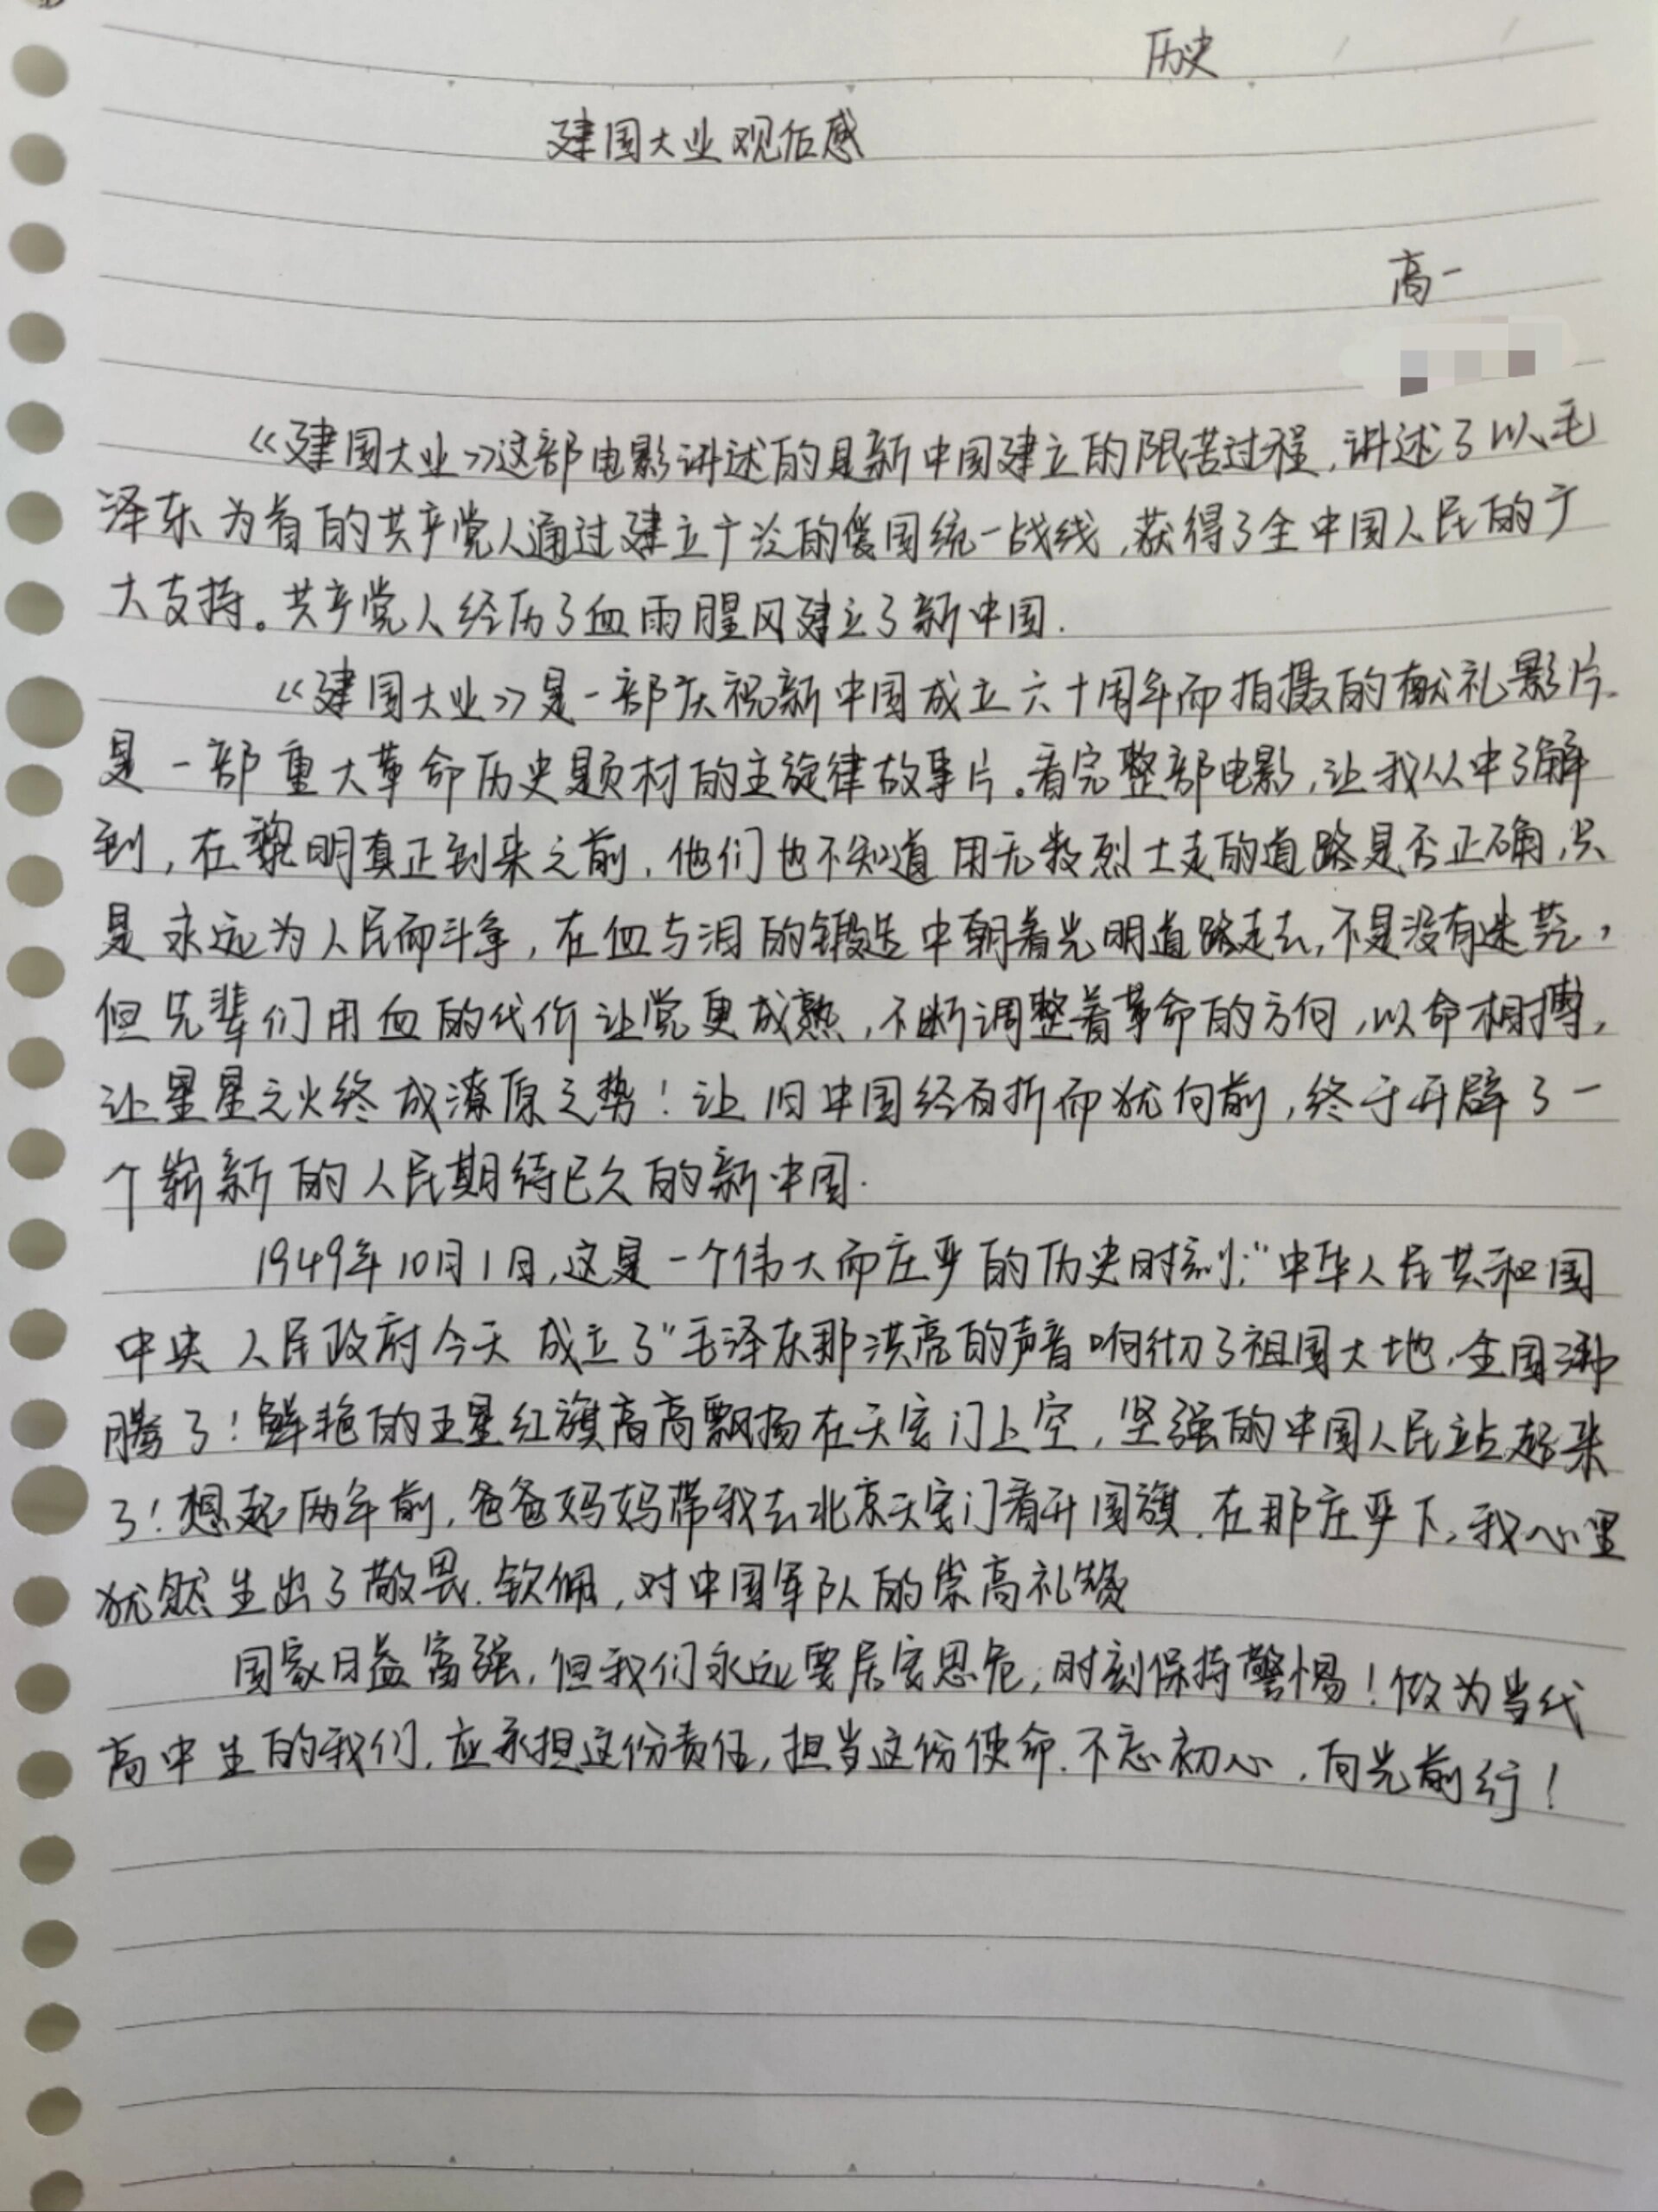 历史
建国大业观后感
高一
《建国大业》这部电影讲述的是新中国建立的限苦过程,讲述了以毛
泽东为首的共产党人通过建立广泛的爱国统一战线,获得了全中国人民的广
大支持。共产党人经历了血雨腥风建立了新中国.
《建国大业》是一部庆祝新中国成立六十周年而拍摄的献礼影片.
是一部重大革命历史题材的主旋律故事片。看完整部电影,让我从中了解
到,在黎明真正到来之前,他们也不知道用无数烈士走的道路是否正确,只
是永远为人民而斗争,在血与泪的锻造中朝着光明道路走去,不是没有迷茫,
但先辈们用血的代价让党更成熟,不断调整着革命的方向,以命相搏,
让星星之火终成潦原之势!让旧中国经百折而犹向前,终于开辟了一
个崭新的人民期待已久的新中国.
1949年10月1日,这是一个伟大而庄严的历史时刻;“中华人民共和国
中央人民政府今天成立了”毛泽东那洪亮的声音响彻了祖国大地,全国沸
腾了!鲜艳的五星红旗高高飘扬在天安门上空,坚强的中国人民站起来
了!想起两年前,爸爸妈妈带我去北京天安门看升国旗.在那庄严下,我心里
犹然生出了敬畏.钦佩,对中国军队的崇高礼赞
国家日益富强,但我们永远要居安思危,时刻保持警惕!做为当代
高中生的我们,应承担这份责任,担当这份使命.不忘初心,向光前行!